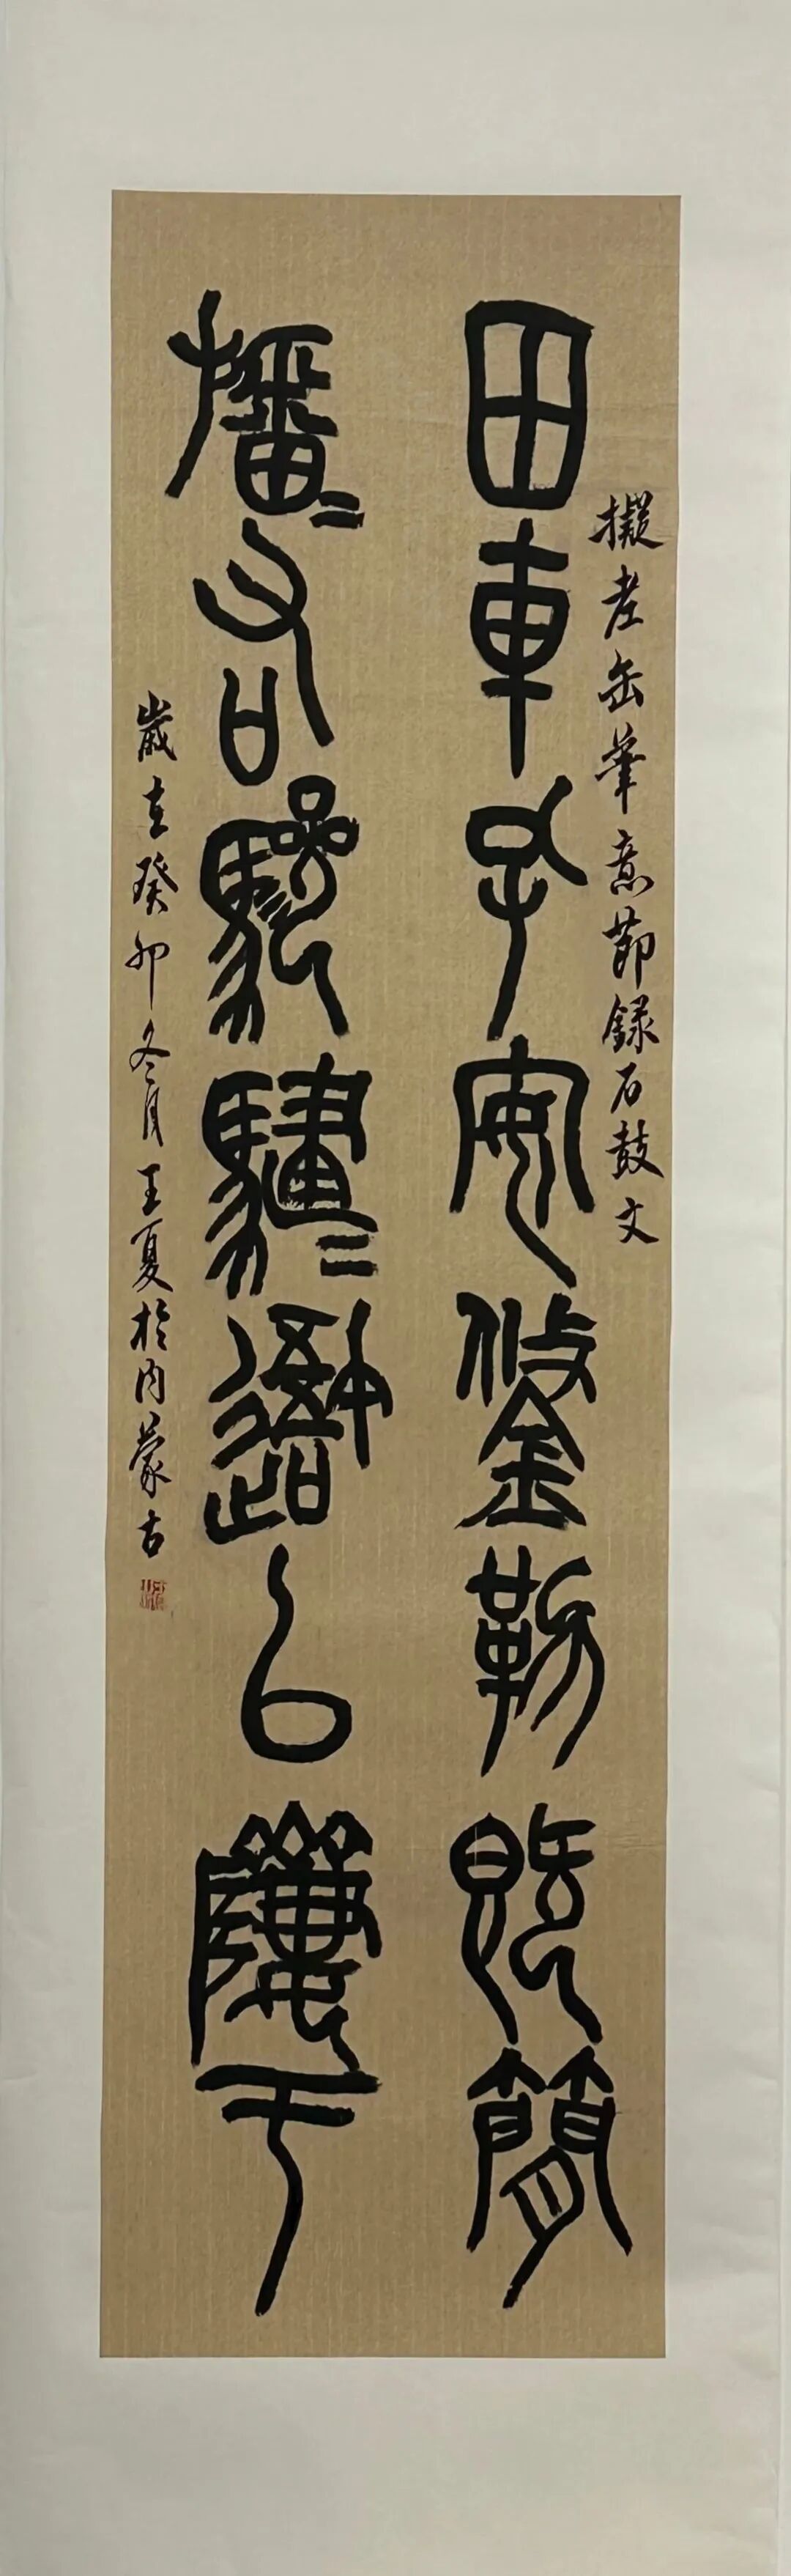 擬老缶筆意節錄石鼓文
田車孔安鋚勒既簡
旛〻右驂騝〻吾以隮于
歲在癸卯冬月王夏於内蒙古